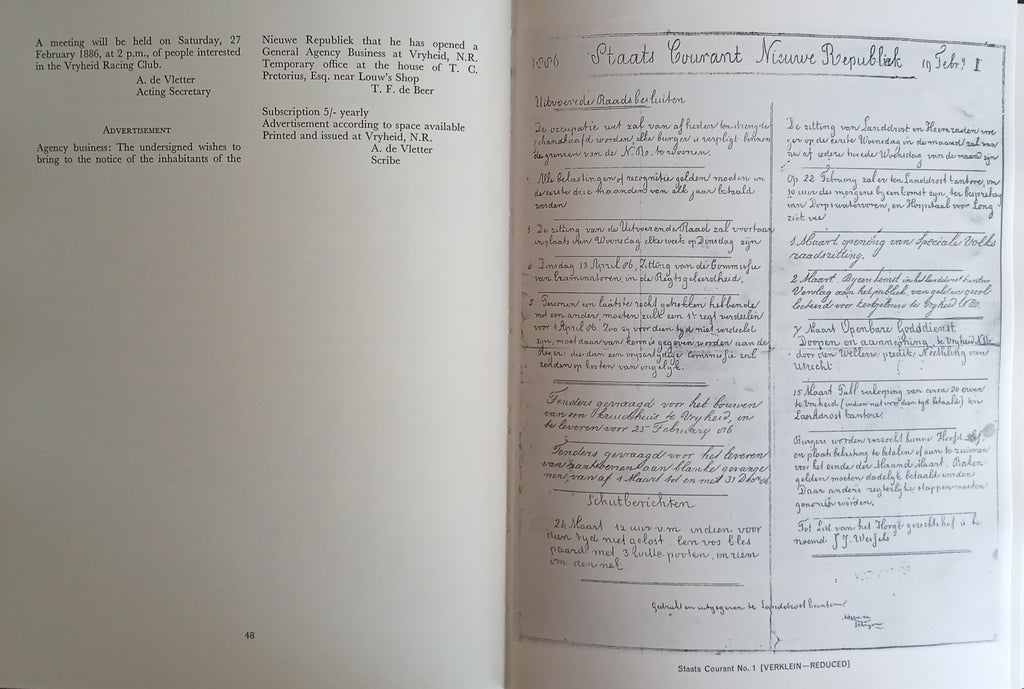 A meeting will be held on Saturday, 27
February 1886, at 2 p.m., of people interested
in the Vryheid Racing Club.
A. de Vletter
Acting Secretary
ADVERTISEMENT
Agency business: The undersigned wishes to
bring to the notice of the inhabitants of the
Nieuwe Republiek that he has opened a
General Agency Business at Vryheid, N.R.
Temporary office at the house of T. C.
Pretorius, Esq. near Louw's Shop
T. F. de Beer
Subscription 5/- yearly
Advertisement according to space available
Printed and issued at Vryheid, N.R.
A. de Vletter
Scribe
48
1886 Staats Courant Nieuwe Republiek 19 Febry I
Uitvoerende Raadsbesluiten
De occupatie wet zal van af heden ten strengste
gehandhaafd worden, elke burger is verpligt binnen
de grenzen van de N.R. te wonen.
Alle belastingen of recognitie gelden moeten in
de eerste drie maanden van elk jaar betaald
worden
3 De zitting van de Uitvoerende Raad zal voortaan
in plaats van Woensdag elke week op Dinsdag zijn
4 Dinsdag 13 April 86, Zitting van de Commissie
van Examinatoren, in de Regtsgeleerdheid.
5 Personen een laatste recht getrokken hebbende
met een ander, moeten zulk een 1e regt verdeelen
voor 1 April 86 Zoo zy voor dien tyd niet verdeelt
zyn, moet daar van kennis gegeven worden aan de
Regr: die dan een onpartydige Commissie zal
zenden op kosten van ongelyk.
Tenders gevraagd voor het bouwen
van een kruidhuis te Vryheid, en
te leveren voor 25 February 86
Tenders gevraagd voor het leveren
van rantsoenen aan blanke gevange
nen, van af 1 Maart tot en met 31 Decr 86.
Schutberichten
24 Maart 12 uur v.m indien voor
dien tyd niet gelost. Een vos bles
paard met 3 witte pooten, en riem
om den nek.
De zitting van Landdrost en Heemraden
op de eerste Woensdag in de maand zal van
nu af iedere tweede Woensdag van de maand zijn
Op 22 February zal er ten Landdrost kantore, om
10 uur des morgens byeenkomst zyn, ter bespreking
van Dorpswatervoren, en Hospitaal voor Long
ziek vee
1 Maart opening van Speciale Volks
raadszitting.
2 Maart. Byeenkomst in het landdrost kantoor
Verslag aan het publiek van geld en gecol
lecteerd voor te Vryheid
7 Maart Openbare Godsdienst
Doopen en aanneming, te Vryheid N.R.
door den Wellerw: predik: Neethling van
Utrecht
15 Maart Publ verkooping van circa 20 erven
te Vryheid (indien niet voor dien tyd betaald) ten
Landdrost kantore
Burgers worden verzocht hunne Hoofd
en plaats belasting te betalen of aan te zuiveren
voor het einde der Maand Maart. Baken
gelden moeten dadelyk betaald worden
Daar anders regterlyke stappen moeten
genomen worden.
Tot Lid van het Hooge gerechtshof is be
noemd J J. Wessels
Gedrukt en uitgegeven te Landdrost kantoor
Staats Courant No. 1 [VERKLEIN—REDUCED]